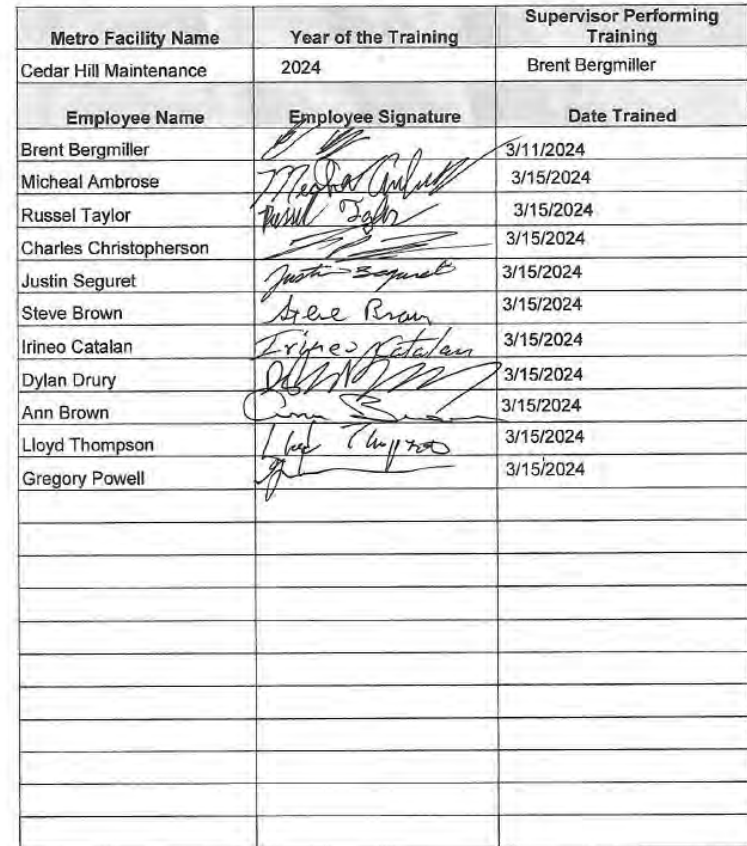 Metro Facility Name Year of the Training Supervisor Performing Training
Cedar Hill Maintenance 2024 Brent Bergmiller
Employee Name Employee Signature Date Trained
Brent Bergmiller 3/11/2024
Micheal Ambrose 3/15/2024
Russel Taylor Russel Taylor 3/15/2024
Charles Christopherson 3/15/2024
Justin Seguret Justin Seguret 3/15/2024
Steve Brown Steve Brown 3/15/2024
Irineo Catalan Irineo Catalan 3/15/2024
Dylan Drury 3/15/2024
Ann Brown 3/15/2024
Lloyd Thompson 3/15/2024
Gregory Powell 3/15/2024